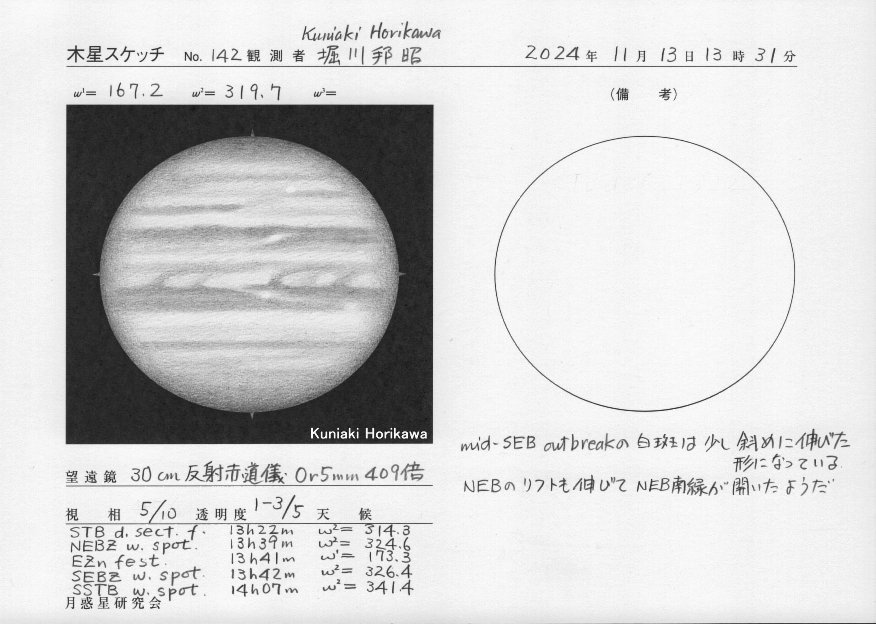 Kuniaki Horikawa
木星スケッチ No. 142 観測者 堀川邦昭 2024年 11月 13日 13時 31分
ω¹= 167.2 ω²= 319.7 ω³=
(備 考)
Kuniaki Horikawa
mid-SEB outbreakの白斑は少し斜めに伸びた
形になっている.
NEBのリフトも伸びてNEB南縁が開いたようだ
望遠鏡 30cm反射赤道儀 Or5mm 409倍
視 相 5/10 透明度 1-3/5 天 候
STB d. sect. f. 13h22m ω²= 314.3
NEBZ w. spot. 13h39m ω²= 324.6
EZn fest. 13h41m ω¹= 173.3
SEBZ w. spot. 13h42m ω²= 326.4
SSTB w. spot. 14h07m ω²= 341.4
月惑星研究会